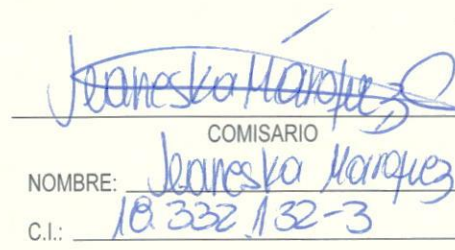 Jeaneska Márquez
COMISARIO
NOMBRE: Jeaneska Marquez
C.I.: 18.332.132-3